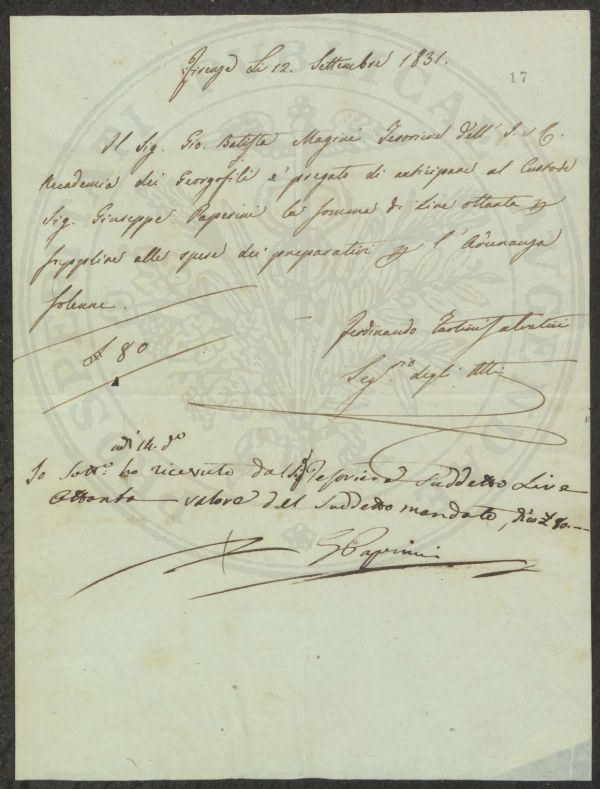 Firenze Li 12. Settembre 1831.
17
Il Sig. Gio. Batista Magini Tesoriere dell' I. e R.
Accademia dei Georgofili è pregato di anticipare al Custode
Sig. Giuseppe Paperini la somma di Lire ottanta p
supplire alle spese dei preparativi p l'Adunanza
solenne.
£ 80
Ferdinando Tartini Salvatici
Seg.rio degli Atti
adì 14. do
Io Sotto. ho ricevuto dal Sig. Tesoriere Suddetto Lire
Ottanta valore del Suddetto mandato, dico £ 80.—
G Paperini
PROSPERITATI PUBLICAE AUGENDAE